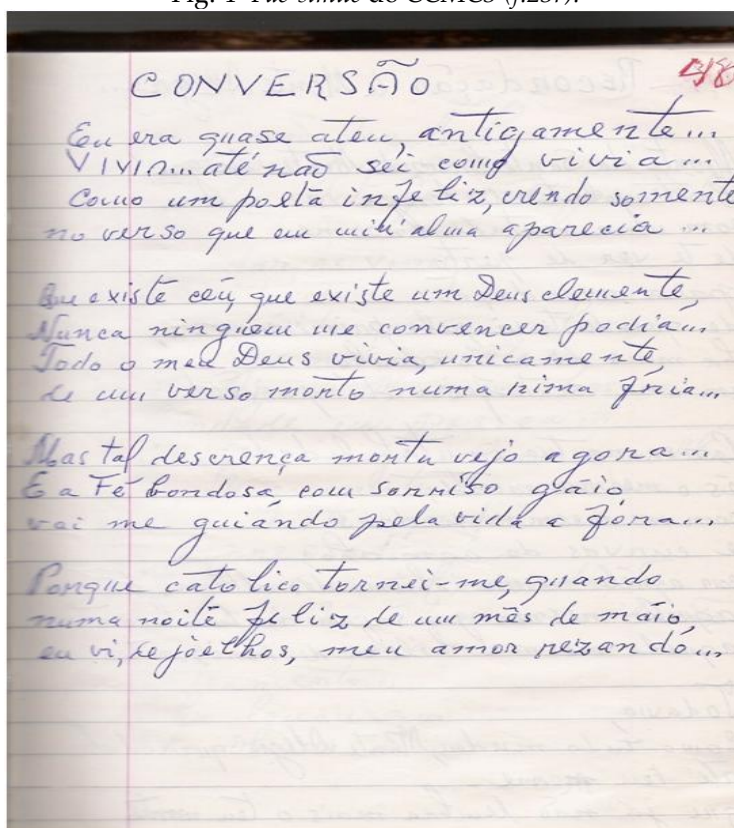 Fig. 1 Fac-símile do CCMC3 (f.237).
CONVERSÃO
Eu era quase ateu, antigamente...
VIVIA... até não sei como vivia...
Como um poeta infeliz, crendo somente
no verso que em minh'alma aparecia...
Que existe céu, que existe um Deus clemente,
Nunca ninguém me convencer podia...
Todo o meu Deus vivia, unicamente,
de um verso morto numa rima fria...
Mas tal descrença morta vejo agora...
E a Fé bondosa, com sorriso gáio,
vai me guiando pela vida a fora...
Porque catolico tornei-me, quando
numa noite feliz de um mês de maio,
eu vi, de joelhos, meu amor rezando...